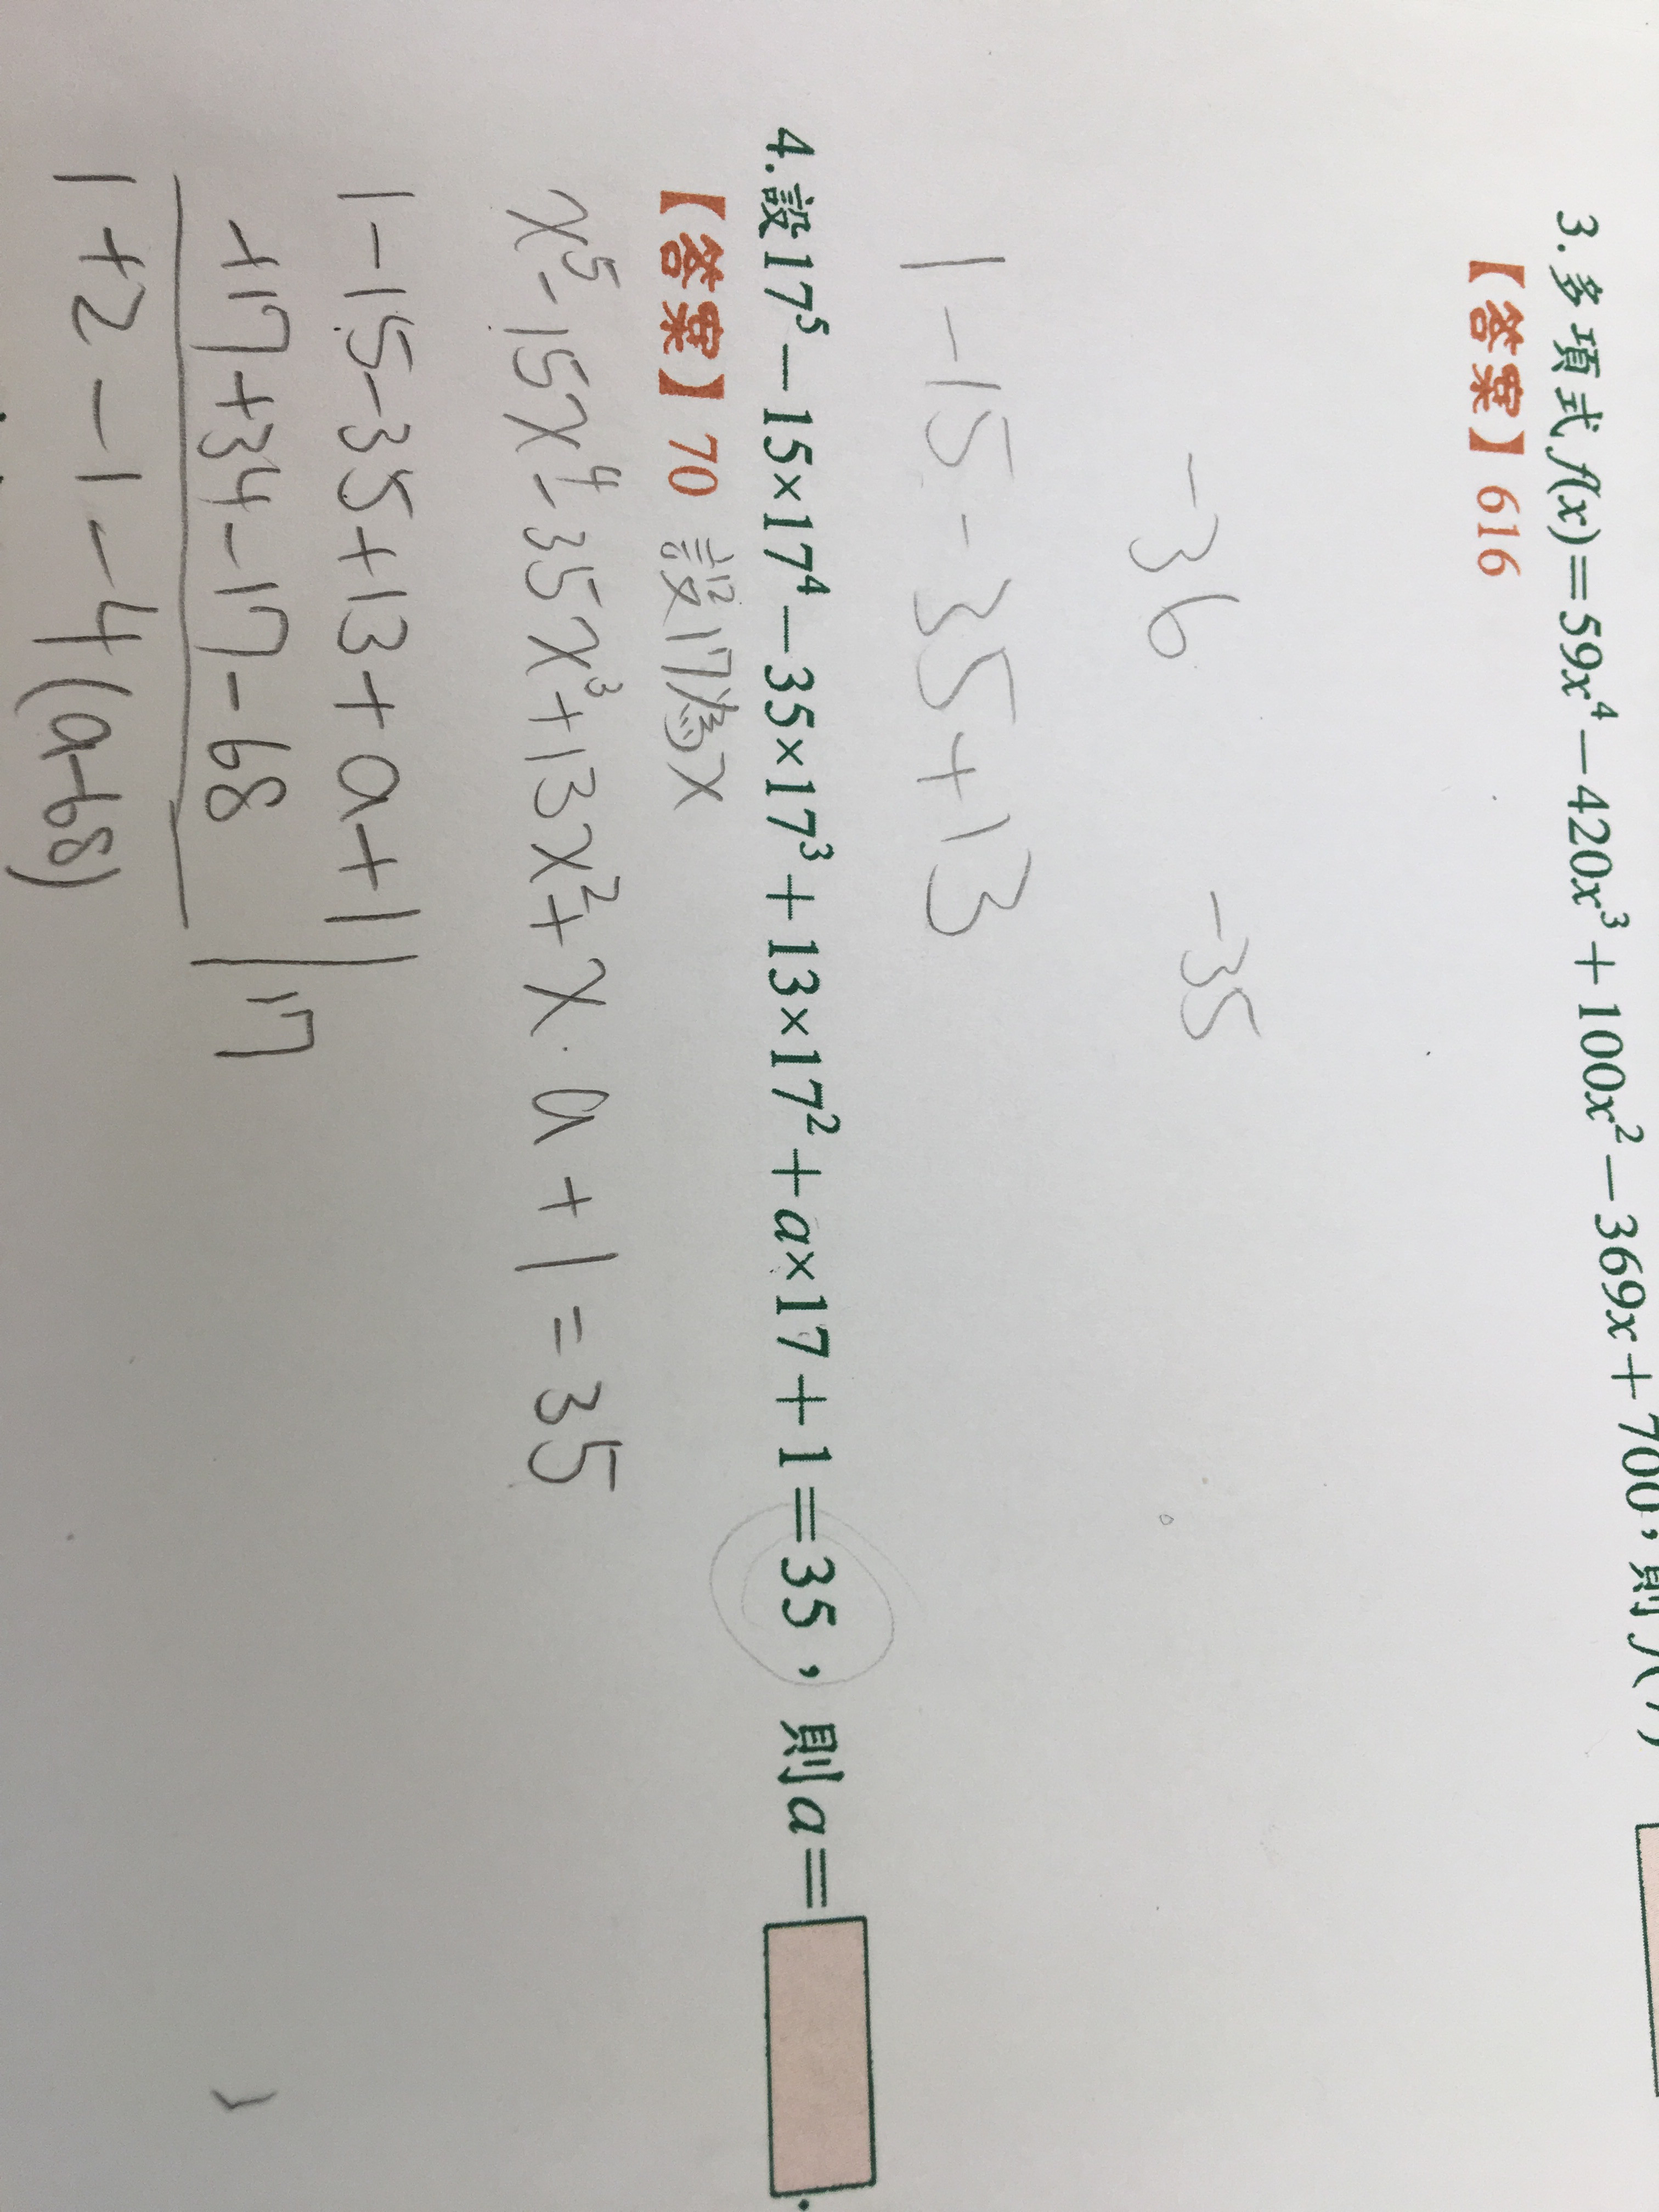 3.多項式f(x)=59x⁴－420x³＋100x²－369x＋700，則f(7)
【答案】616
-36 -35
1-15-35+13
4.設17⁵－15×17⁴－35×17³＋13×17²＋a×17＋1＝35，則a＝
【答案】70 設17為x
x⁵-15x⁴-35x³+13x²+x·a+1=35
1-15-35+13+a+1
+17+34-17-68 17
1+2-1-4(a-68)